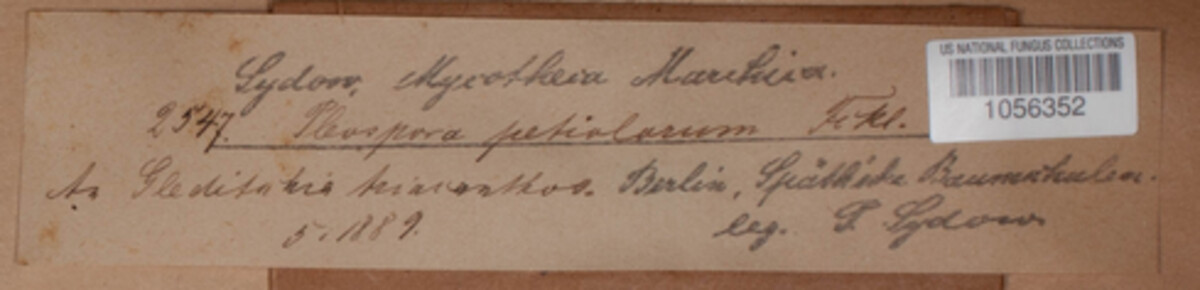 Sydow, Mycotheca Marchica.
2547. Pleospora petiolorum Fckl.
An Gleditschia triacanthos. Berlin, Späth'sche Baumschulen.
5. 1889.
leg. P. Sydow
US NATIONAL FUNGUS COLLECTIONS
1056352